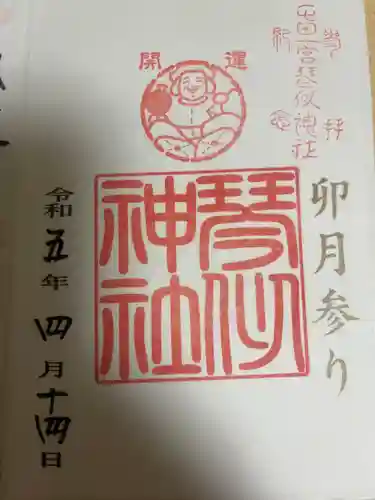 奉拝
一宮琴似神社
卯月参り
開運
琴似
神社
令和五年四月十四日